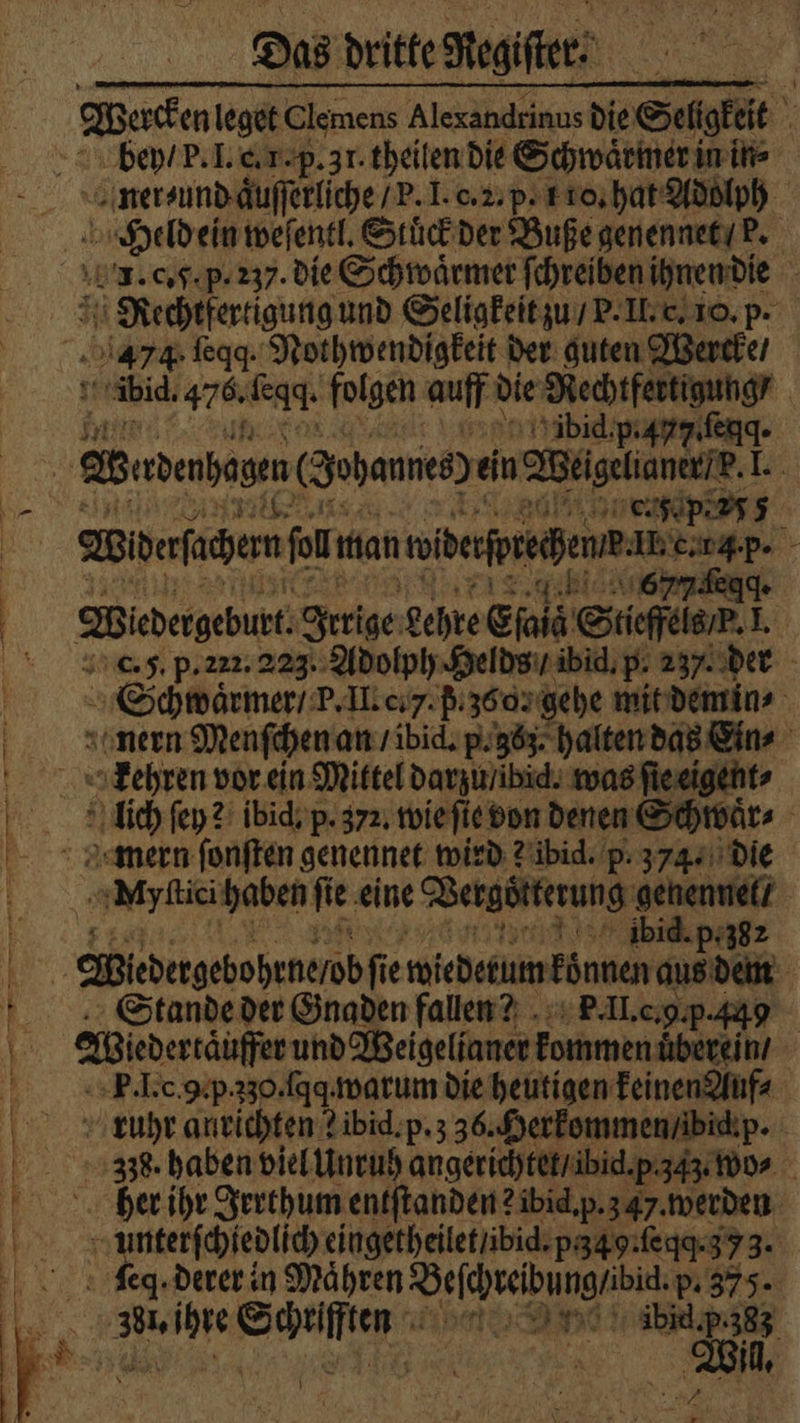 Das dritte Regiſter.
Wercken leget Clemens Alexandrinus die Seligkeit
bey/ P. I. c. 1. p. 31. theilen die Schwaͤrmer in in⸗
ner⸗und aͤuſſerliche / P. I. c. 2. p. 110. hat Adolph
Held ein weſentl. Stuͤck der Buße genennet / P.
I. c. 5. p. 237. die Schwaͤrmer ſchreiben ihnen die
Rechtfertigung und Seligkeit zu / P. II. c. 10. p.
474. ſeqq. Nothwendigkeit der guten Wercke/
ibid. 476. ſeqq. folgen auff die Rechtfertigung/
ibid. p. 477. ſeqq.
Werdenhagen (Johannes) ein Weigelianer/ P. I.
c. p. 255
Widerſachern ſoll man widerſprechen/ P. II. c. 14. p.
677. ſeqq.
Wiedergeburt. Irrige Lehre Eſaiaͤ Stieffels/ P. I.
c. 5. p. 222. 223. Adolph Helds / ibid. p. 237. der
Schwaͤrmer / P. II. c. 7. p. 360. gehe mit dem in⸗
nern Menſchen an / ibid. p. 363. halten das Ein⸗
kehren vor ein Mittel darzu/ ibid. was ſie eigent⸗
lich ſey? ibid. p. 372. wie ſie von denen Schwaͤr⸗
mern ſonſten genennet wird? ibid. p. 374. die
Myſtici haben ſie eine Vergoͤtterung genennet/
ibid. p. 382
Wiedergebohrne/ ob ſie wiederum koͤnnen aus dem
Stande der Gnaden fallen? P. II. c. 9. p. 449
Wiedertaͤuffer und Weigelianer kommen uͤberein/
P. I. c. 9. p. 330. ſqq. warum die heutigen keinen Auf⸗
ruhr anrichten? ibid. p. 336. Herkommen/ ibid. p.
338. haben viel Unruh angerichtet/ ibid. p. 343. wo⸗
her ihr Irrthum entſtanden? ibid. p. 347. werden
unterſchiedlich eingetheilet/ ibid. p. 349. ſeqq. 373.
ſeq. derer in Maͤhren Beſchreibung/ ibid. p. 375.
381. ihre Schrifften ibid. p. 383
Will,